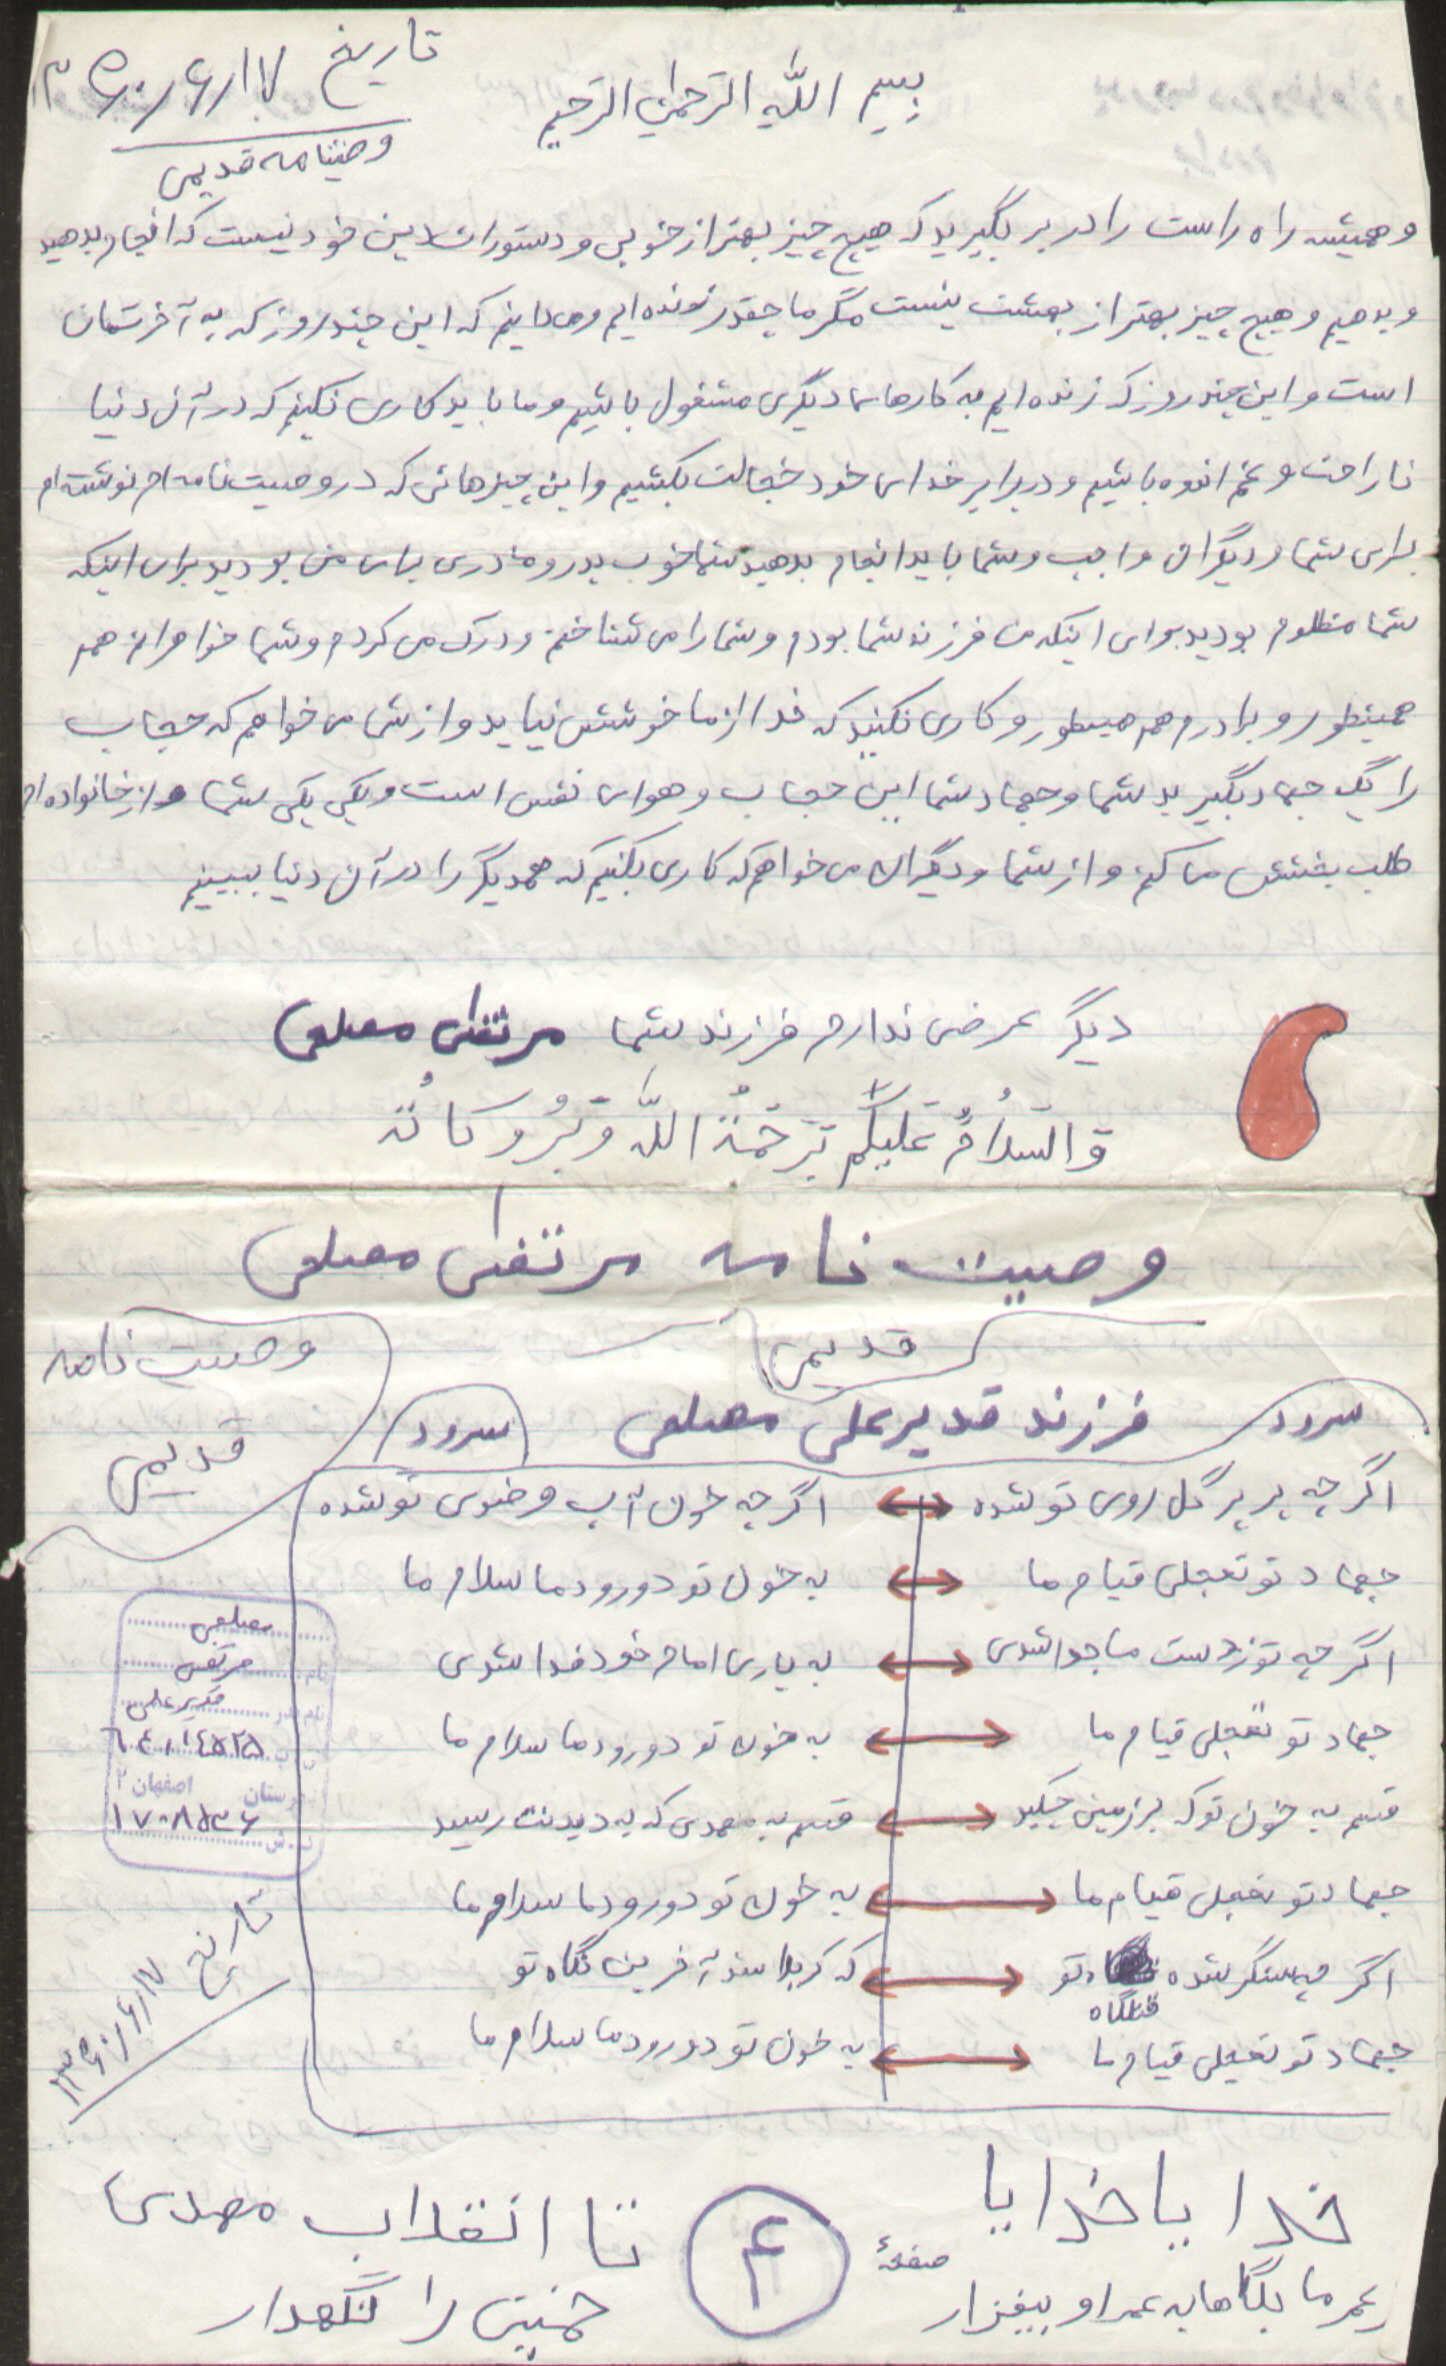 تاریخ ۱۳۶۰/۶/۱۷
بِسمِ اللّهِ الرَّحمنِ الرَّحیمِ
وصیتنامه قدیمی
و همیشه راه راست را در بر بگیرید که هیچ چیز بهتر از خوبی و دستورات دین خود نیست که انجام بدهید
و بدهیم و هیچ چیز بهتر از بهشت نیست مگر ما چقدر زنده ایم و می دانیم که این چند روز که به آخرتمان
است و این چند روز که زنده ایم به کارهای دیگری مشغول باشیم و ما باید کاری نکنیم که در آن دنیا
ناراحت و غم اندوه باشیم و در برابر خدای خود خجالت بکشیم و این چیزهائی که در وصیت نامه ام نوشته ام
برای شما و دیگران واجب و شما باید انجام بدهید شما خوب پدر و مادری برای من بودید برای اینکه
شما مظلوم بودید برای اینکه من فرزند شما بودم و شما را می شناختم و درک می کردم و شما خواهرانم هم
همینطور و برادرم هم همینطور و کاری نکنید که خدا از ما خوشش نیاید و از شما می خواهم که حجاب
را یک جهاد بگیرید شما و جهاد شما این حجاب و هوای نفس است و یکی یکی شما و از خانواده ام
طلب بخشش می کنم و از شما و دیگران می خواهم که کاری بکنیم که همدیگر را در آن دنیا ببینیم
دیگر عرضی ندارم فرزند شما مرتضی مصلحی
وَالسَّلامُ عَلَیکُم وَرَحمَةُ اللّه وَ بَرَوکاتُه
وصیت نامه مرتضی مصلحی
قدیمی
وصیت نامه
قدیمی
سرود فرزند قدیرعلی مصلحی سرود
اگر چه پرپر گل روی تو شده اگر چه خون آب وضوی تو شده
جهاد تو تجلی قیام ما به خون تو دورود ما سلام ما
اگر چه تو ز دست ما جدا شدی به یاری امام خود فدا شدی
جهاد تو تجلی قیام ما به خون تو دورود ما سلام ما
قسم به خون تو که بر زمین چکید قسم به مهدی که به دیدنت رسید
جهاد تو تجلی قیام ما به خون تو دورود ما سلام ما
اگر چه سنگر شده قتلگاه تو که کربلا شد آفرین نگاه تو
جهاد تو تجلی قیام ما به خون تو دورود ما سلام ما
مصلحی
نام مرتضی
نام پدر قدیرعلی
شهرستان اصفهان ۲
تاریخ ۱۳۶۰/۶/۱۷
خدایا خدایا تا انقلاب مهدی
صفحهٔ ۴
ز عمر ما بکاها به عمر او بیفزار خمینی را نگهدار